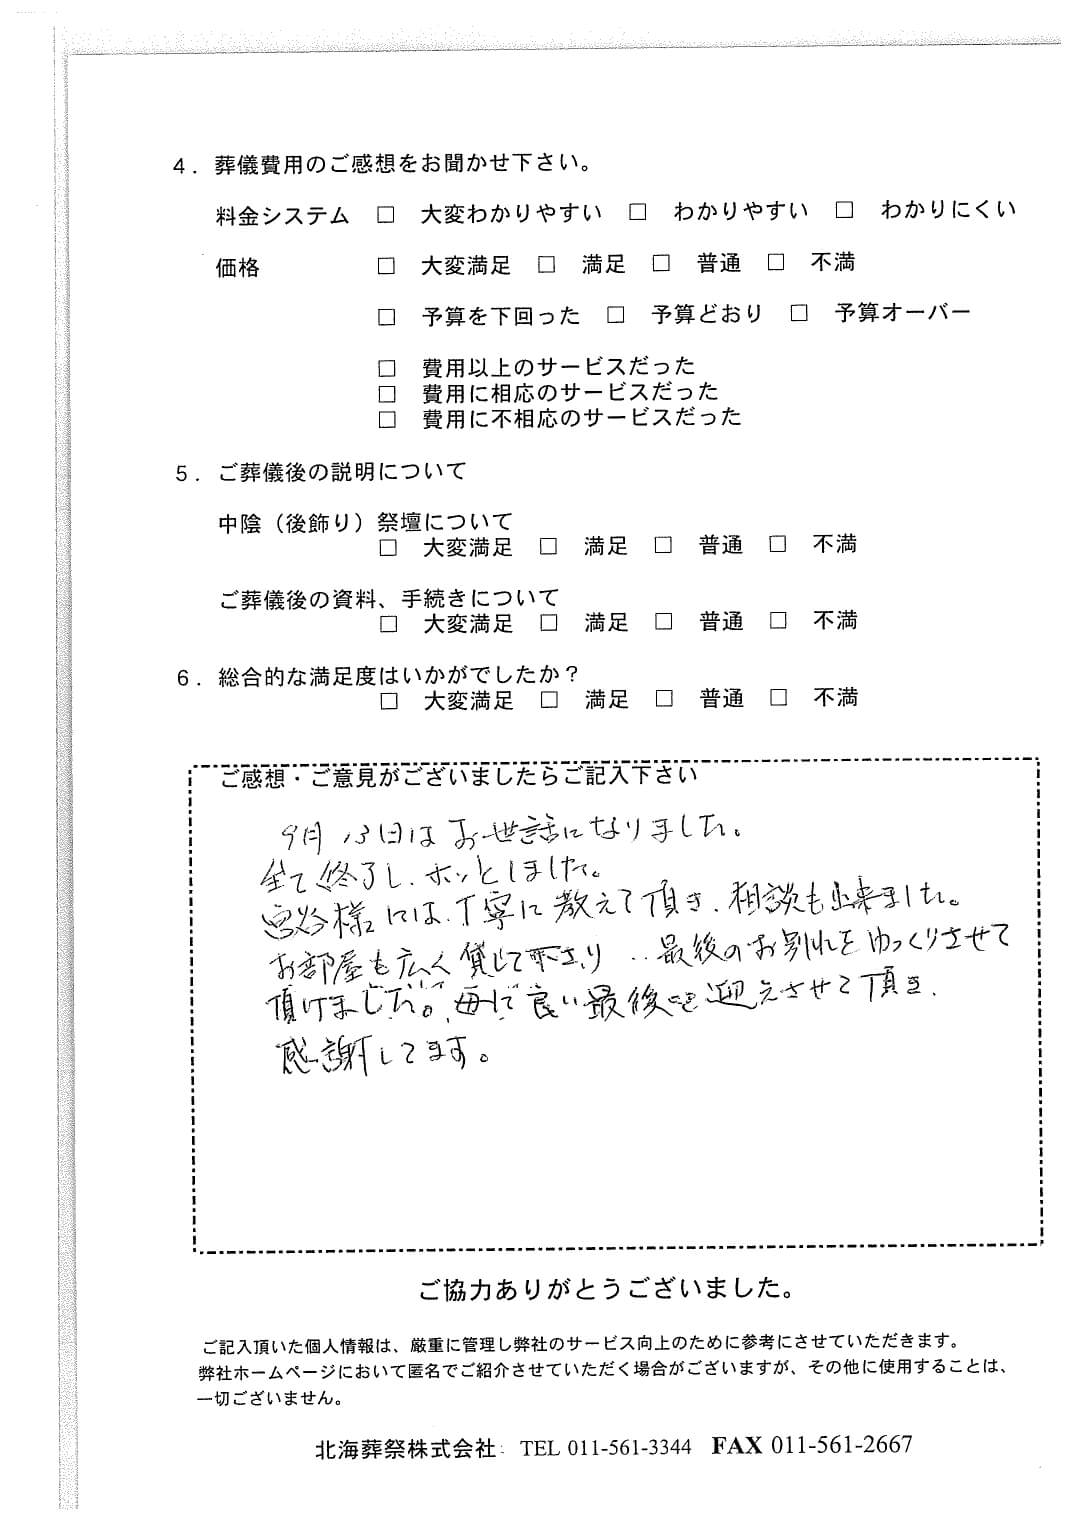 4．葬儀費用のご感想をお聞かせ下さい。
料金システム □ 大変わかりやすい □ わかりやすい □ わかりにくい
価格 □ 大変満足 □ 満足 □ 普通 □ 不満
□ 予算を下回った □ 予算どおり □ 予算オーバー
□ 費用以上のサービスだった
□ 費用に相応のサービスだった
□ 費用に不相応のサービスだった
5．ご葬儀後の説明について
中陰（後飾り）祭壇について
□ 大変満足 □ 満足 □ 普通 □ 不満
ご葬儀後の資料、手続きについて
□ 大変満足 □ 満足 □ 普通 □ 不満
6．総合的な満足度はいかがでしたか？
□ 大変満足 □ 満足 □ 普通 □ 不満
ご感想・ご意見がございましたらご記入下さい
9月13日はお世話になりました。
全て終了し、ホッとしました。
宮谷様には、丁寧に教えて頂き、相談も出来ました。
お部屋も広く貸して下さり、、最後のお別れをゆっくりさせて
頂けました。母に良い最後を迎えさせて頂き、
感謝してます。
ご協力ありがとうございました。
ご記入頂いた個人情報は、厳重に管理し弊社のサービス向上のために参考にさせていただきます。
弊社ホームページにおいて匿名でご紹介させていただく場合がございますが、その他に使用することは、
一切ございません。
北海葬祭株式会社 TEL 011-561-3344 FAX 011-561-2667